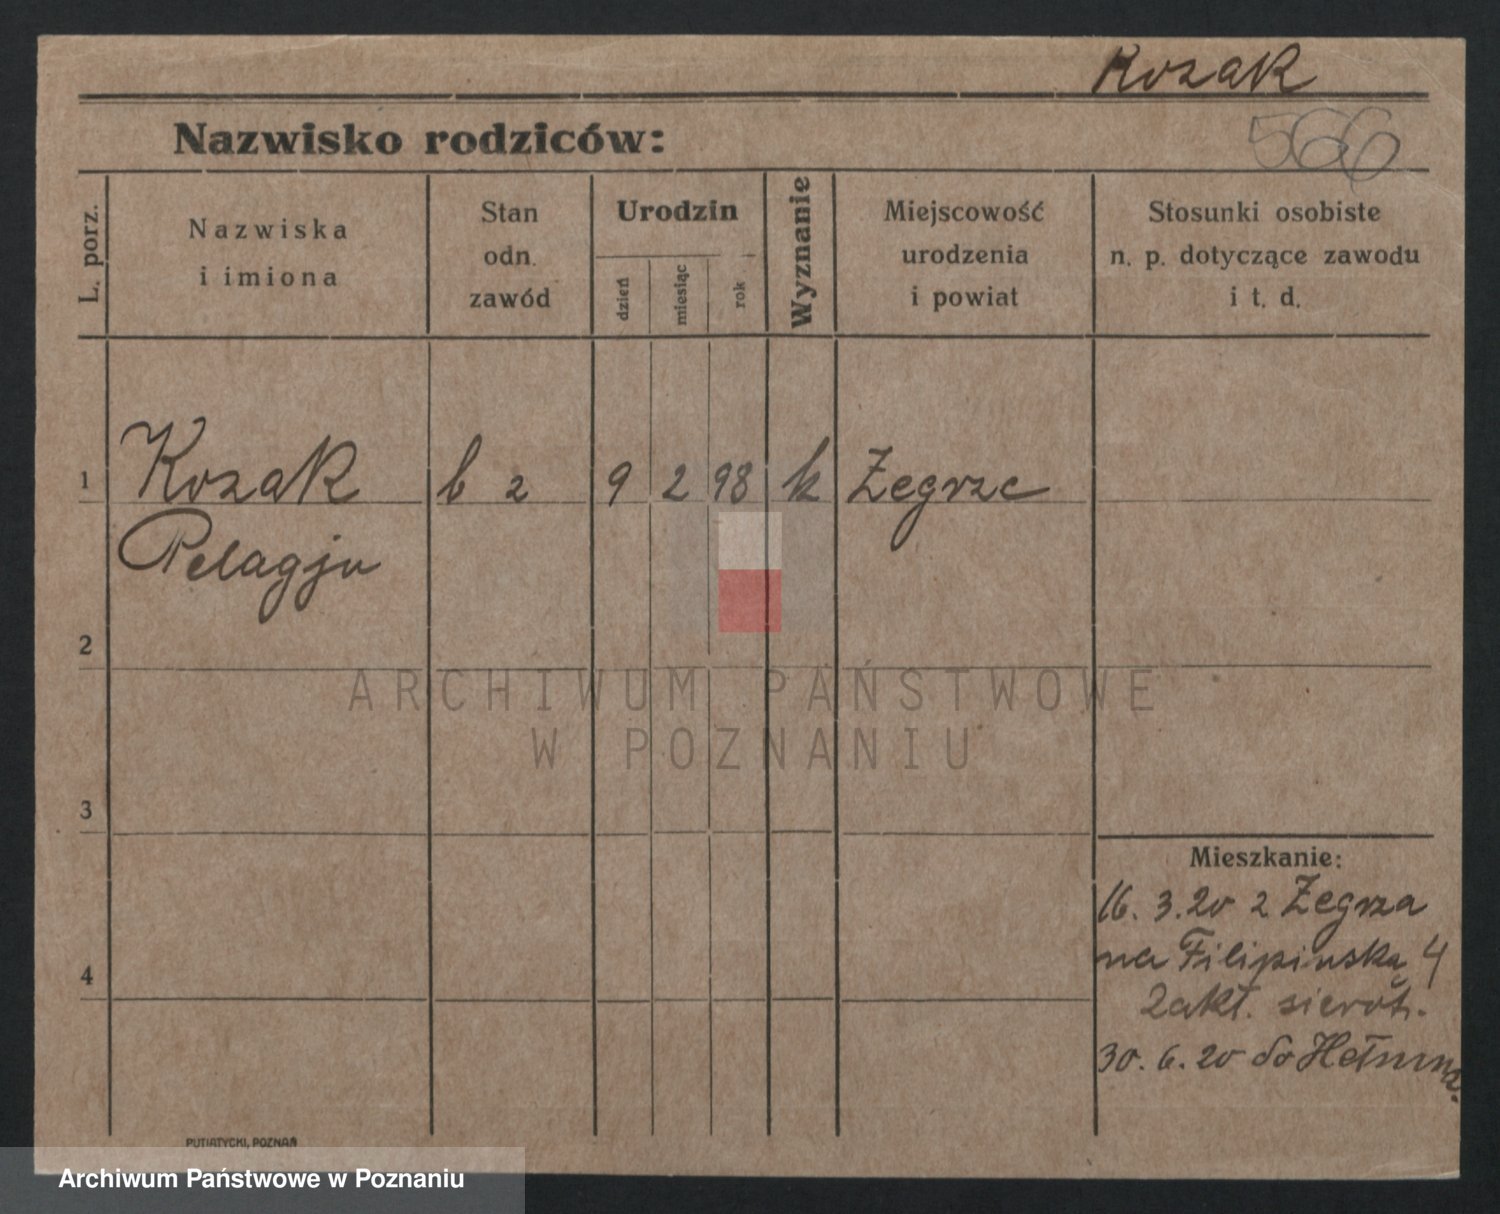 Kozak
566
Nazwisko rodziców:
L. porz.
Nazwiska
i imiona
Stan
odn.
zawód
Urodzin
dzień
miesiąc
rok
Wyznanie
Miejscowość
urodzenia
i powiat
Stosunki osobiste
n. p. dotyczące zawodu
i t. d.
1 Kozak b z 9 2 98 k Żegrze
Pelagja
2
3
4
ARCHIWUM PAŃSTWOWE
W POZNANIU
Mieszkanie:
16. 3. 20 z Żegrza
na Filipińska 4
Zakł. sierot.
30. 6. 20 do
PUTIATYCKI, POZNAŃ
Archiwum Państwowe w Poznaniu